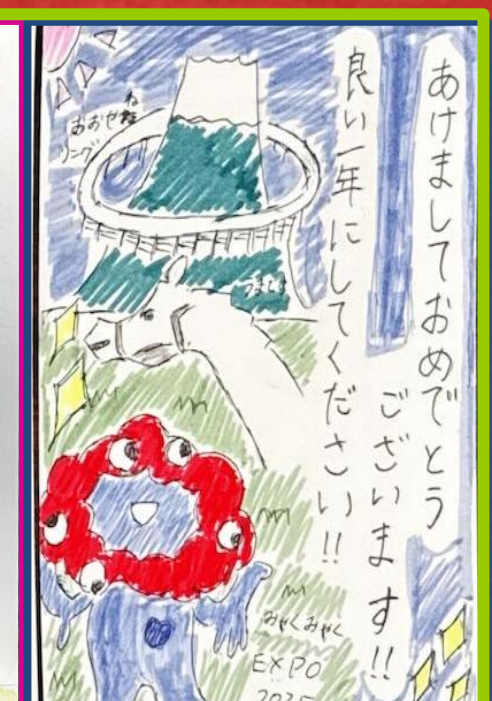 あけましておめでとう
ございます!!
良い一年にしてください!!
リング
みゃくみゃく
EXPO
2025